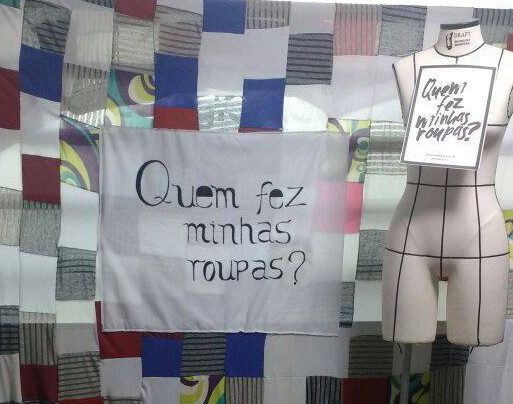 Quem fez
minhas
roupas?
DRAFT
Quem
fez
minhas
roupas?